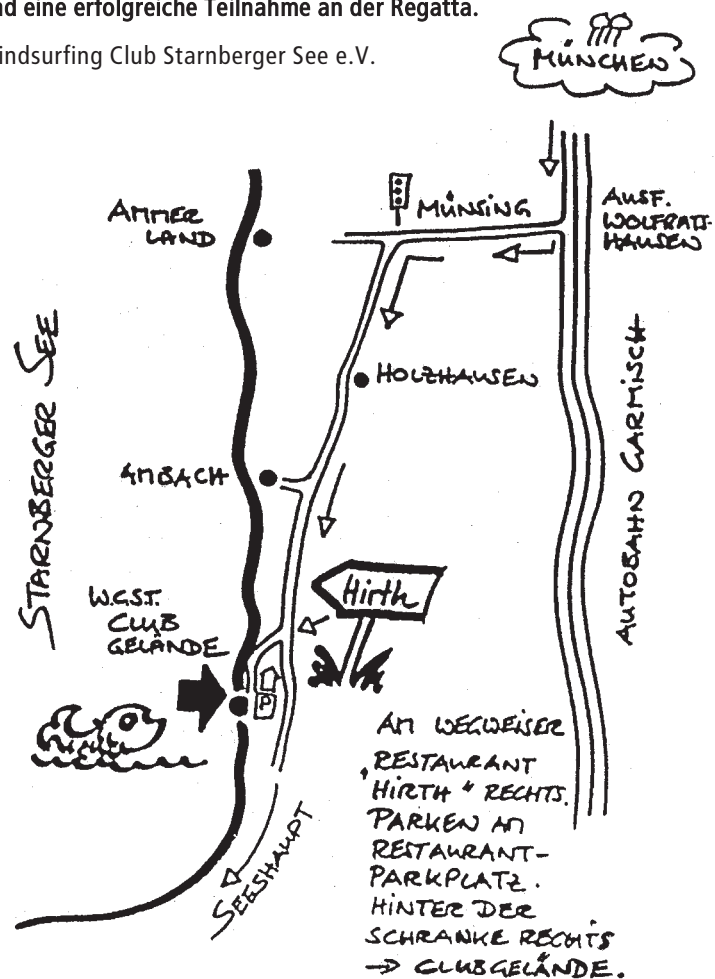 nd eine erfolgreiche Teilnahme an der Regatta.
indsurfing Club Starnberger See e.V.
MÜNCHEN
AMMER
LAND
MÜNSING
AUSF.
WOLFRATS-
HAUSEN
HOLZHAUSEN
STARNBERGER SEE
AUTOBAHN GARMISCH
AMBACH
Hirth
W.G.ST.
CLUB
GELÄNDE
P
AM WEGWEISER
„RESTAURANT
HIRTH" RECHTS.
PARKEN AM
RESTAURANT-
PARKPLATZ.
HINTER DER
SCHRANKE RECHTS
→ CLUBGELÄNDE.
SEESHAUPT